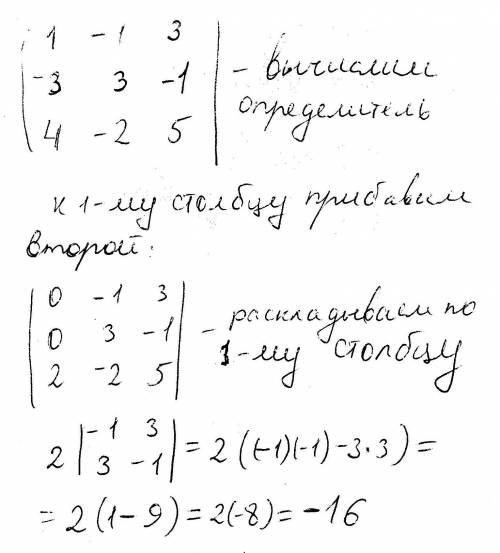 | 1 -1 3 |
| -3 3 -1 | - вычислим
| 4 -2 5 | определитель
к 1-му столбцу прибавим
второй:
| 0 -1 3 |
| 0 3 -1 | - раскладываем по
| 2 -2 5 | 1-му столбцу
2 | -1 3 | = 2 ((-1)(-1) - 3·3) =
| 3 -1 |
= 2 (1 - 9) = 2(-8) = -16